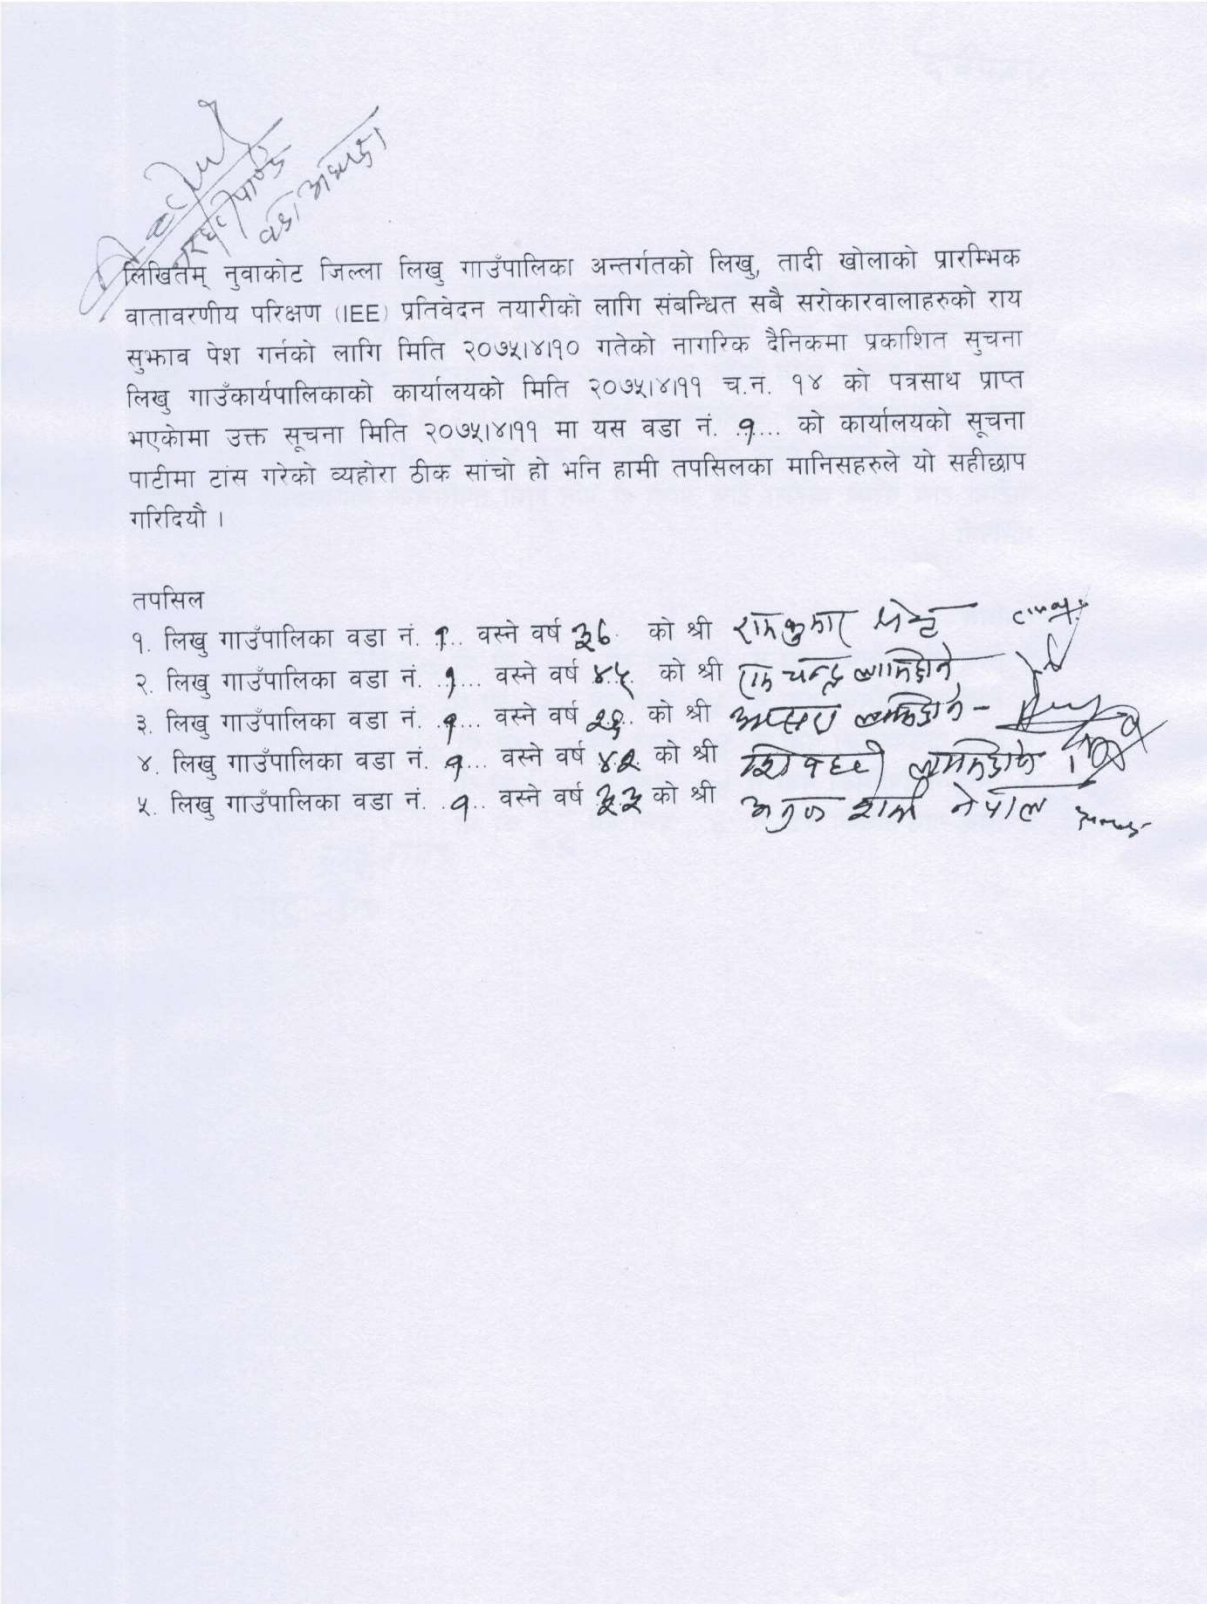 वडा अध्यक्ष
लिखितम् नुवाकोट जिल्ला लिखु गाउँपालिका अन्तर्गतको लिखु, तादी खोलाको प्रारम्भिक
वातावरणीय परिक्षण (IEE) प्रतिवेदन तयारीको लागि संबन्धित सबै सरोकारवालाहरुको राय
सुझाव पेश गर्नको लागि मिति २०७५।४।१० गतेको नागरिक दैनिकमा प्रकाशित सुचना
लिखु गाउँकार्यपालिकाको कार्यालयको मिति २०७५।४।११ च.न. १४ को पत्रसाथ प्राप्त
भएकोमा उक्त सूचना मिति २०७५।४।११ मा यस वडा नं. .१.... को कार्यालयको सूचना
पाटीमा टांस गरेको व्यहोरा ठीक सांचो हो भनि हामी तपसिलका मानिसहरुले यो सहीछाप
गरिदियौ ।
तपसिल
१. लिखु गाउँपालिका वडा नं. .१... वस्ने वर्ष ३६ को श्री रामकुमार
२. लिखु गाउँपालिका वडा नं. .१.... वस्ने वर्ष ४५ को श्री राम चन्द्र लामिछाने
३. लिखु गाउँपालिका वडा नं. .१.... वस्ने वर्ष को श्री लामिछाने
४. लिखु गाउँपालिका वडा नं. .१.... वस्ने वर्ष ४२ को श्री शिवहरी लामिछाने
५. लिखु गाउँपालिका वडा नं. .१... वस्ने वर्ष ३३ को श्री शर्मा नेपाल